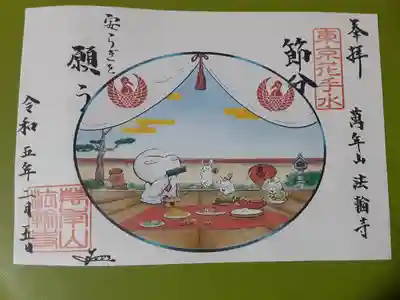 奉拝
東京花手水
萬年山 法輪寺
節分
安らぎを
願う
令和五年二月五日
萬年山
法輪寺